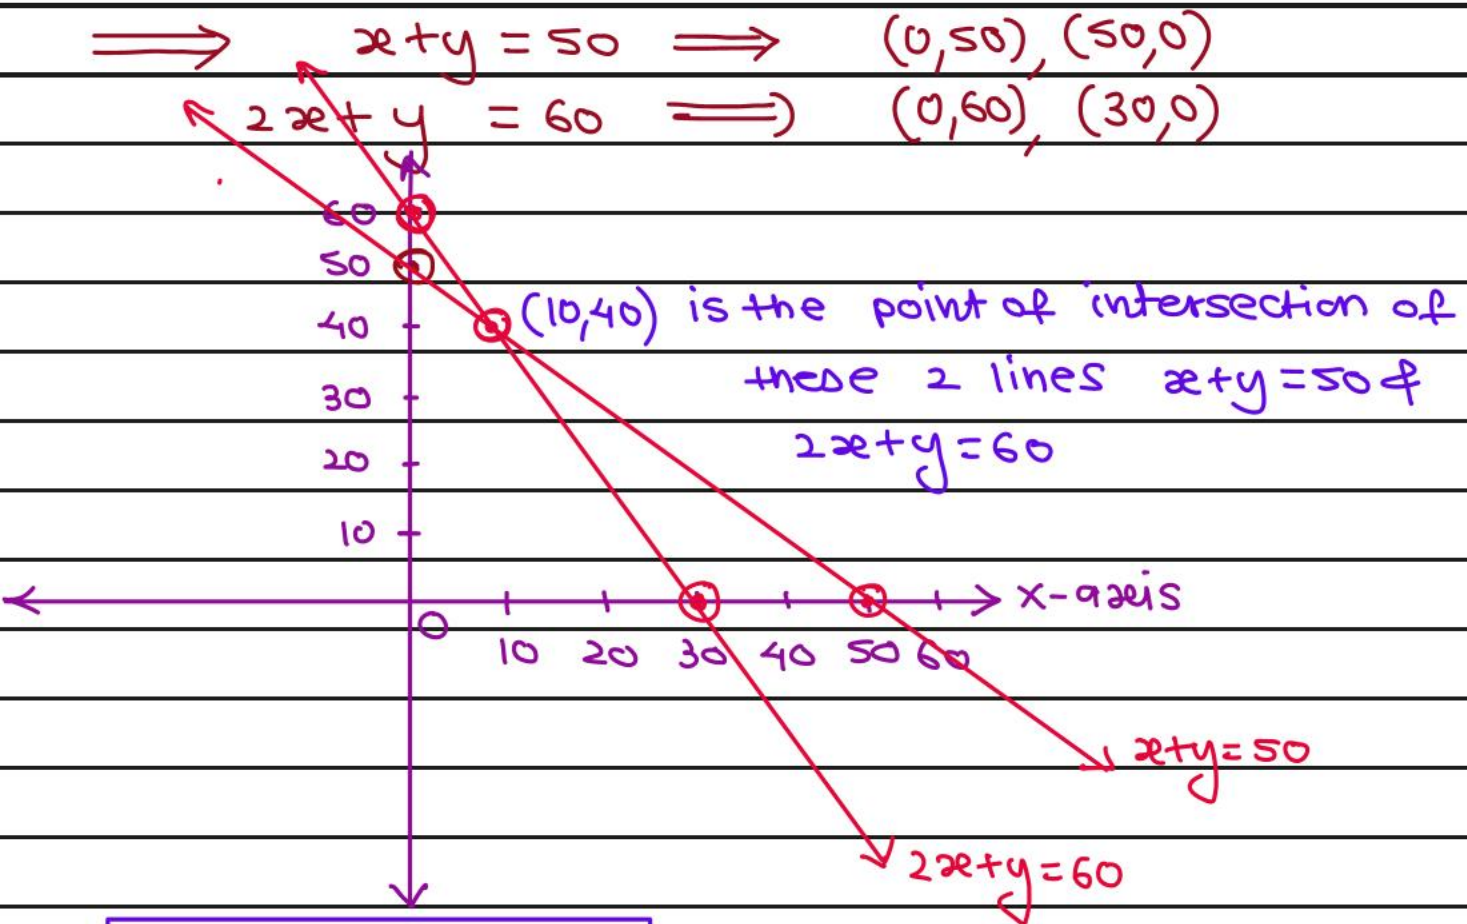 ⟹ x+y = 50 ⟹ (0,50), (50,0)
2x+y = 60 ⟹ (0,60), (30,0)
60
50
40 (10,40) is the point of intersection of
these 2 lines x+y=50 &
30
2x+y=60
20
10
x-axis
O
10 20 30 40 50 60
x+y=50
2x+y=60